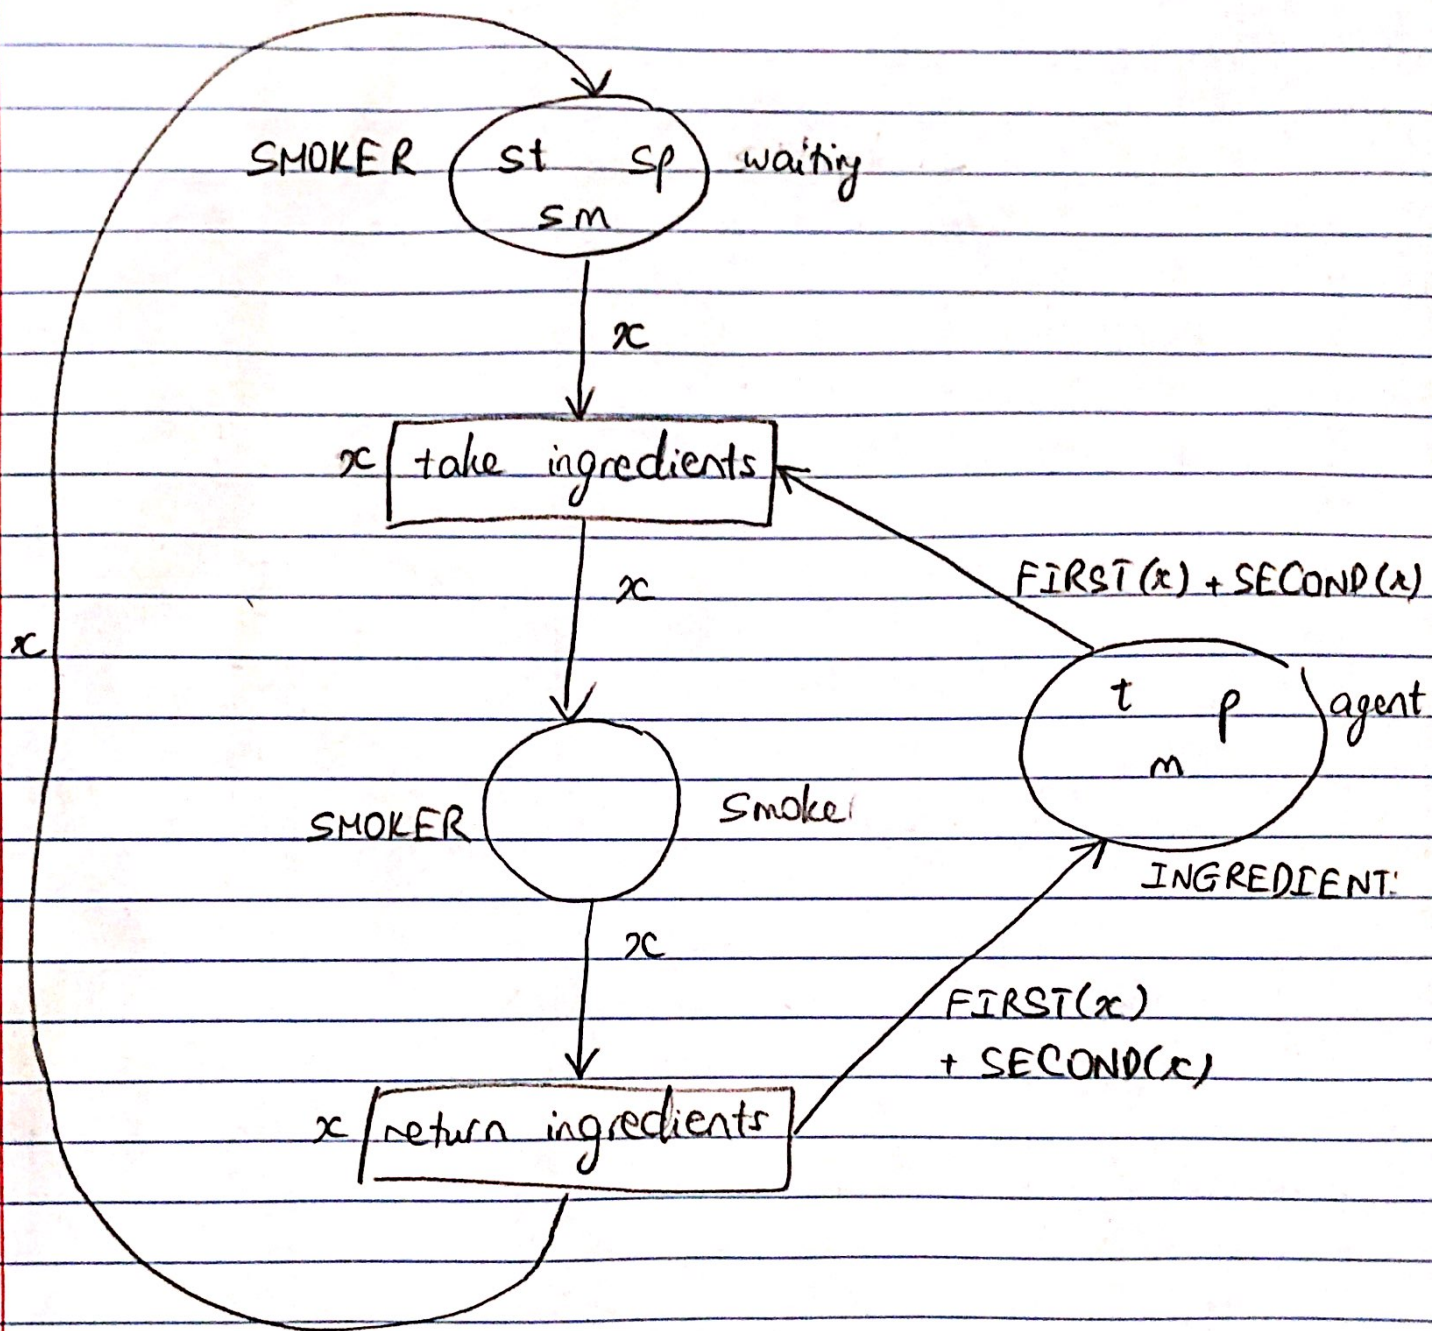 SMOKER st sp waiting
sm
x
x take ingredients
x
FIRST(x) + SECOND(x)
x
t p agent
m
SMOKER Smoke
INGREDIENT
x
FIRST(x)
+ SECOND(x)
x return ingredients